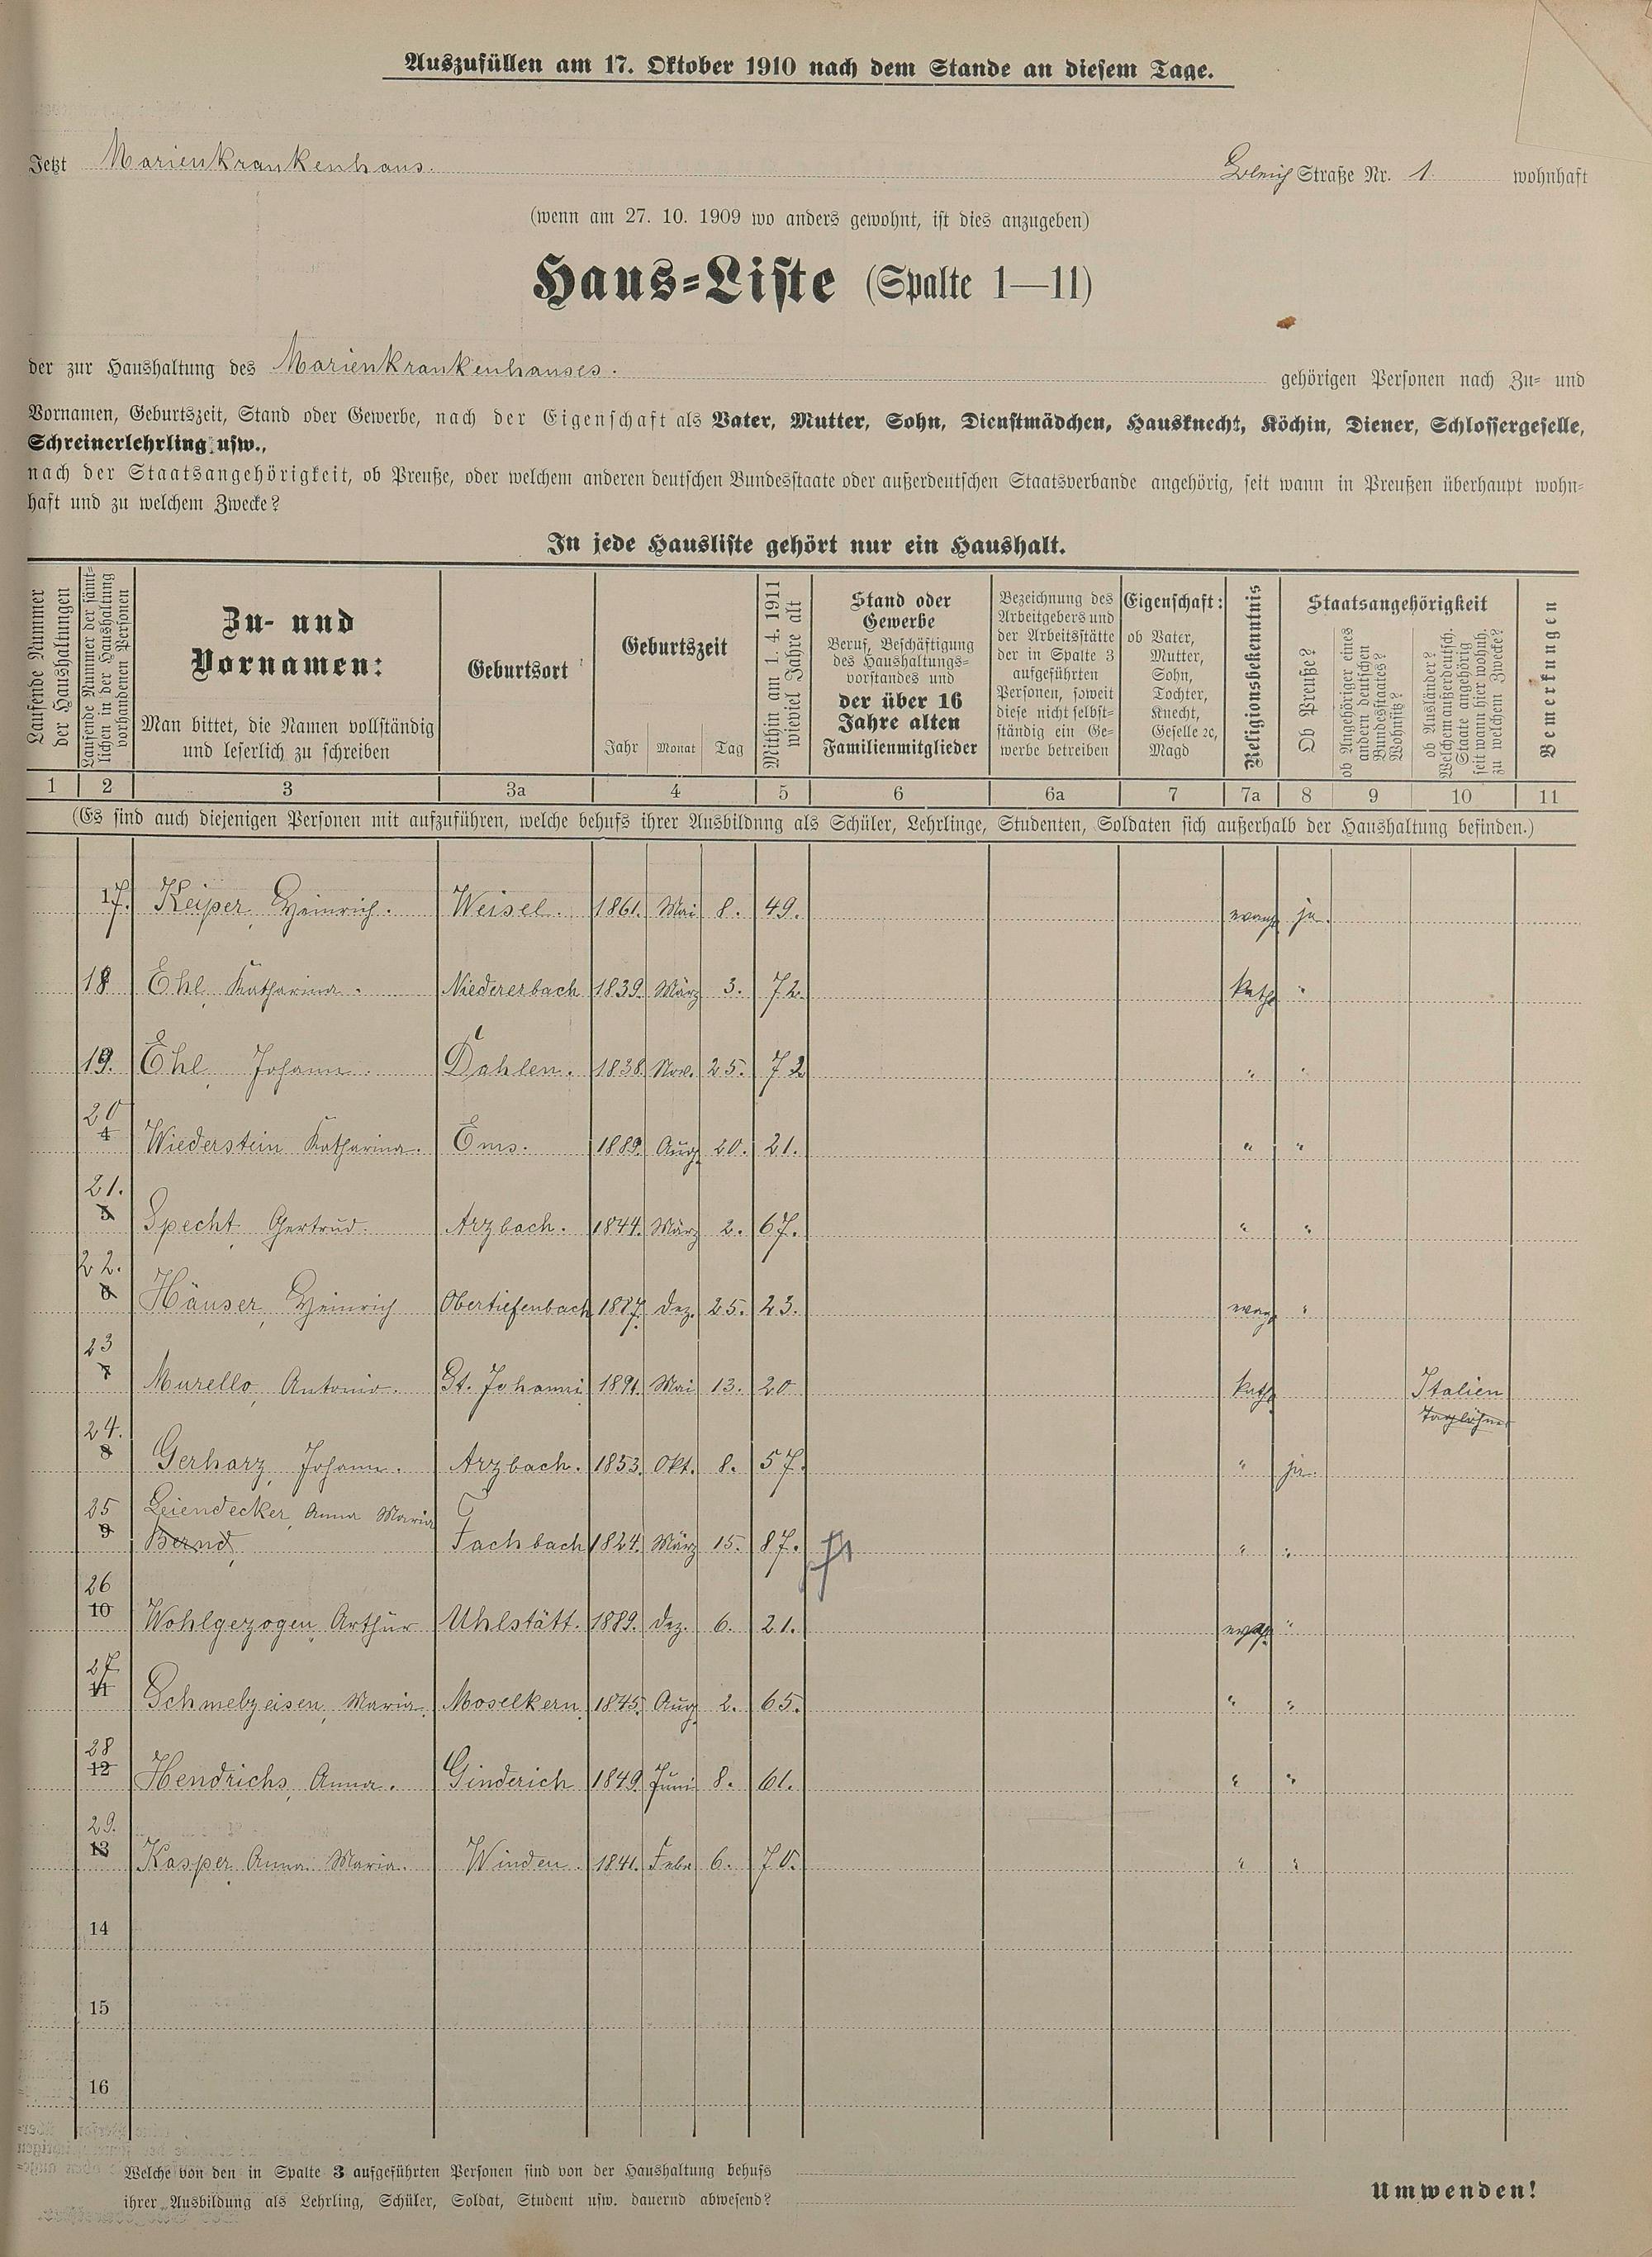 Auszufüllen am 17. Oktober 1910 nach dem Stande an diesem Tage.
Jetzt Marienkrankenhaus. Straße Nr. 1. wohnhaft
(wenn am 27. 10. 1909 wo anders gewohnt, ist dies anzugeben)
Haus=Liste (Spalte 1—11)
der zur Haushaltung des Marienkrankenhauses. gehörigen Personen nach Zu= und
Vornamen, Geburtszeit, Stand oder Gewerbe, nach der Eigenschaft als Vater, Mutter, Sohn, Dienstmädchen, Hausknecht, Köchin, Diener, Schlossergeselle,
Schreinerlehrling usw.,
nach der Staatsangehörigkeit, ob Preuße, oder welchem anderen deutschen Bundesstaate oder außerdeutschen Staatsverbande angehörig, seit wann in Preußen überhaupt wohn=
haft und zu welchem Zwecke?
In jede Hausliste gehört nur ein Haushalt.
Laufende Nummer
der Haushaltungen
Laufende Nummer der sämt-
lichen in der Haushaltung
vorhandenen Personen
Zu- und
Vornamen:
Man bittet, die Namen vollständig
und leserlich zu schreiben
Geburtsort
Geburtszeit
Jahr Monat Tag
Mithin am 1. 4. 1911
wieviel Jahre alt
Stand oder
Gewerbe
Beruf, Beschäftigung
des Haushaltungs=
vorstandes und
der über 16
Jahre alten
Familienmitglieder
Bezeichnung des
Arbeitgebers und
der Arbeitsstätte
der in Spalte 3
aufgeführten
Personen, soweit
diese nicht selbst=
ständig ein Ge=
werbe betreiben
Eigenschaft:
ob Vater,
Mutter,
Sohn,
Tochter,
Knecht,
Geselle ꝛc,
Magd
Religionsbekenntnis
Staatsangehörigkeit
Ob Preuße?
ob Angehöriger eines
andern deutschen
Bundesstaates?
Wohnsitz?
ob Ausländer?
Welchem außerdeutsch.
Staate angehörig
seit wann hier wohnh.
zu welchem Zwecke?
Bemerkungen
1 2 3 3a 4 5 6 6a 7 7a 8 9 10 11
(Es sind auch diejenigen Personen mit aufzuführen, welche behufs ihrer Ausbildung als Schüler, Lehrlinge, Studenten, Soldaten sich außerhalb der Haushaltung befinden.)
17. Keiper, Heinrich. Weisel. 1861. Mai 8. 49. evang. ja.
18 Ehl, Katharina. Niedererbach 1839. März 3. 72. kath. "
19. Ehl, Johann. Dahlen. 1838. Nov. 25. 72 " "
20 4 Wiederstein Katharina. Ems. 1889. Aug. 20. 21. " "
21. 5 Specht, Gertrud. Arzbach. 1844. März 2. 67. " "
22. 6 Häuser, Heinrich Obertiefenbach 1887. Dez. 25. 23. evang. "
23 7 Murello, Antonio. St. Johanni 1891. Mai 13. 20 kath. Italien
Taglöhner
24. 8 Gerharz, Johann. Arzbach. 1853. Okt. 8. 57. " ja.
25 Leiendecker, Anna Maria
9 Bernd, Fachbach 1824. März 15. 87. " "
26 10 Wohlgezogen, Arthur Uhlstätt. 1889. Dez. 6. 21. evang. "
27. 11 Schmelzeisen, Maria. Moselkern. 1845. Aug. 2. 65. " "
28 12 Hendrichs, Anna. Ginderich 1849. Juni 8. 61. " "
29. 13 Kasper, Anna Maria. Winden. 1841. Febr 6. 70. " "
14
15
16
Welche von den in Spalte 3 aufgeführten Personen sind von der Haushaltung behufs
ihrer Ausbildung als Lehrling, Schüler, Soldat, Student usw. dauernd abwesend?
Umwenden!